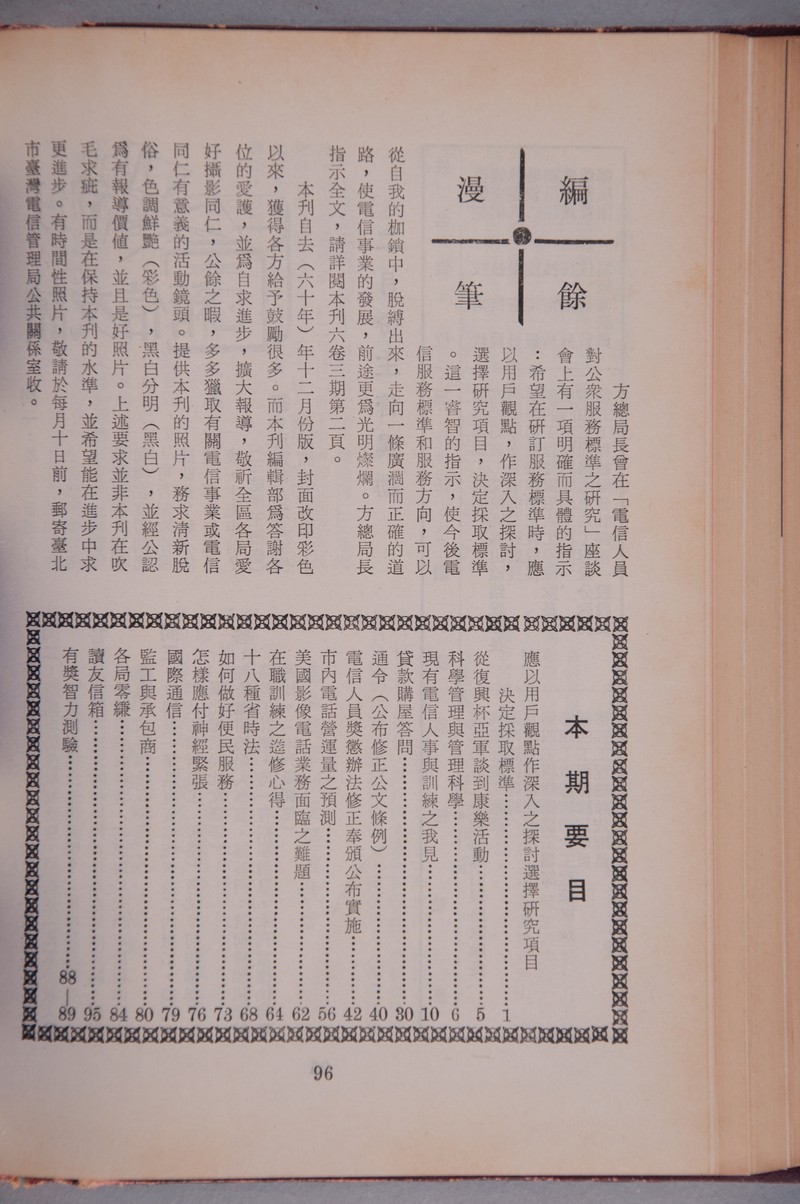 編餘
漫筆
方總局長曾在「電信人員
對公衆服務標準之研究」座談
會上有一項明確而具體的指示
：希望在研訂服務標準時，應
以用戶觀點，作深入之探討，
選擇研究項目，決定採取標準
。這一睿智的指示，使今後電
信服務標準和服務方向，可以
從自我的枷鎖中，脫縛出來，走向一條廣濶而正確的道
路，使電信事業的發展，前途更爲光明燦爛。方總局長
指示全文，請詳閱本刊六卷三期第二頁。
本刊自去（六十年）年十二月份版，封面改印彩色
以來，獲得各方給予鼓勵很多。而本刊編輯部爲答謝各
位的愛護，並爲自求進步，擴大報導，敬祈全區各局愛
好攝影同仁，公餘之暇，多多獵取有關電信事業或電信
同仁有意義的活動鏡頭。提供本刊的照片，務求清新脫
俗，色調鮮艷（彩色），黑白分明（黑白），並經公認
爲有報導價値，並且是好照片。上述要求並非本刊在吹
毛求疵，而是在保持本刊的水準，並希望能在進步中求
更進步。有時間性照片，敬請於每月十日前，郵寄臺北
市臺灣電信管理局公共關係室收。
本期要目
應以用戶觀點作深入之探討選擇研究項目
決定採取標準……1
從復興杯亞軍談到康樂活動……5
科學管理與管理科學……6
現有電信人事與訓練之我見……10
貸款購屋答問……30
通令（公布修正公文條例）……40
電信人員獎懲辦法修正奉頒公布實施……42
市內電話營運量之預測……56
美國影像電話業務面臨之難題……62
在職訓練之進修心得……64
十八種省時法……68
如何做好便民服務……73
怎樣應付神經緊張……76
國際通信……79
監工與承包商……80
各局零縑……84
讀友信箱……95
有獎智力測驗……88—89
96